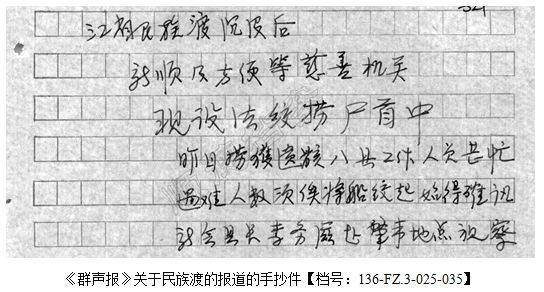 民族渡沉没后
新顺及方便等慈善机关
现设法绞捞尸首中
昨日捞獲遗骸八具工作人员甚忙
遇难人数须俟将船绞起始得讯
新会县长李务赴肇事地点视察
《群声报》关于民族渡的报道的手抄件【档号：136-FZ.3-025-035】